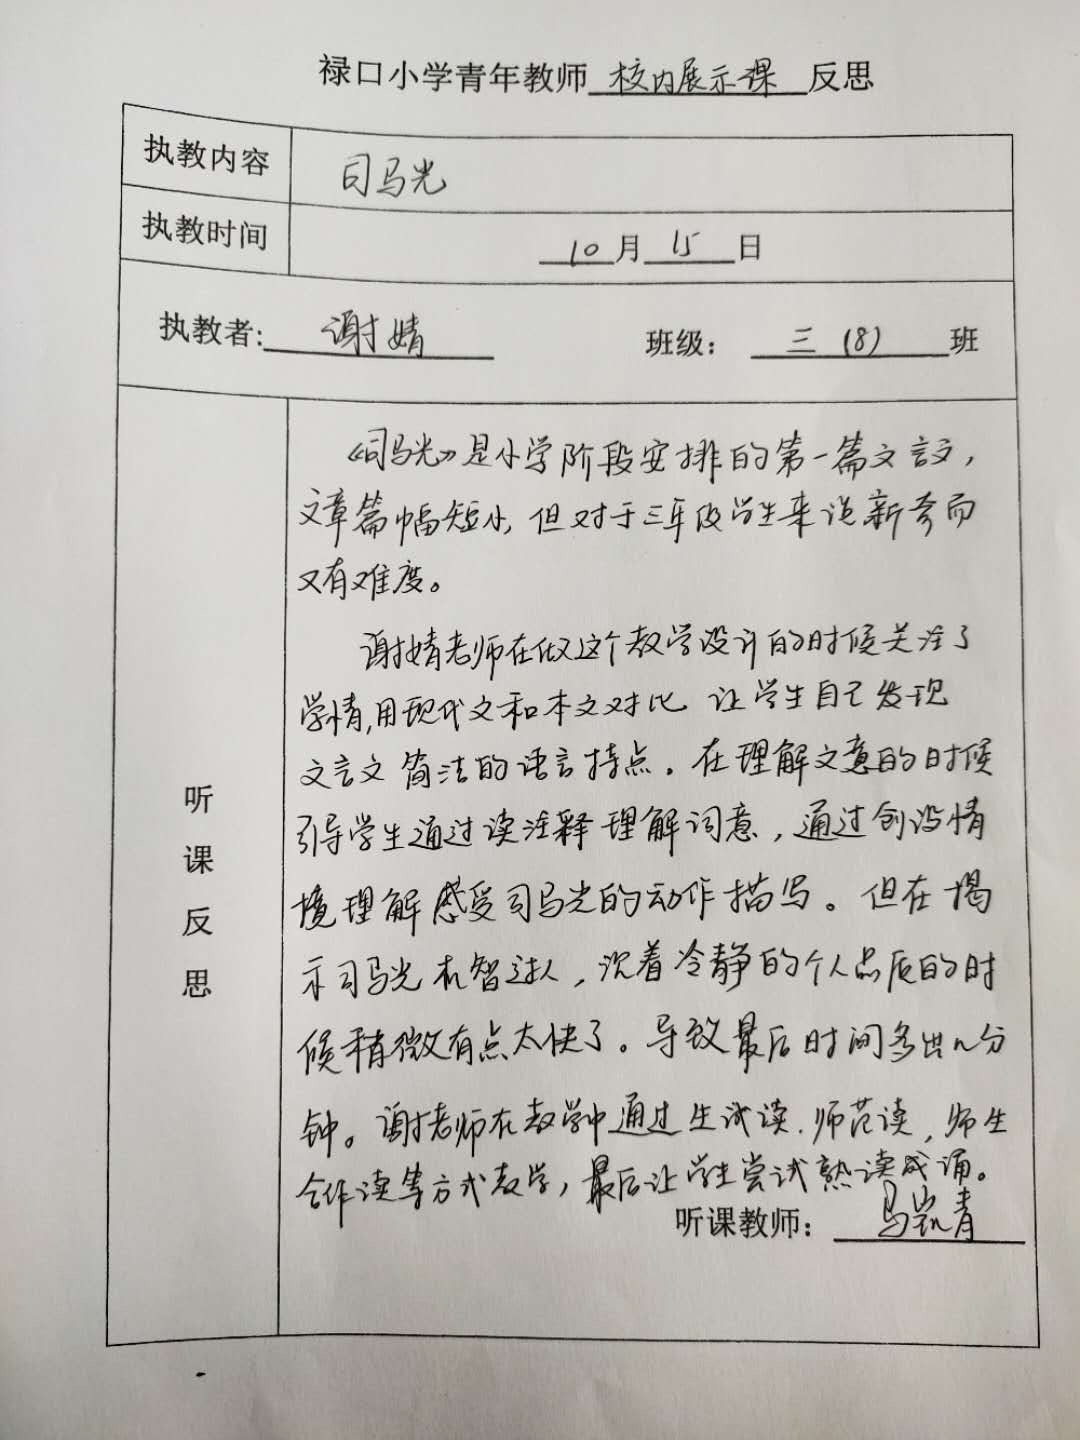 禄口小学青年教师 校内展示课 反思
执教内容 司马光
执教时间 10月15日
执教者: 谢婧 班级: 三(8)班
听课反思
《司马光》是小学阶段安排的第一篇文言文,
文章篇幅短小,但对于三年级学生来说新奇而
又有难度。
谢婧老师在做这个教学设计的时候关注了
学情,用现代文和本文对比 让学生自己发现
文言文简洁的语言特点。在理解文意的时候
引导学生通过读注释理解词意,通过创设情
境理解感受司马光的动作描写。但在揭
示司马光机智过人,沉着冷静的个人品质的时
候稍微有点太快了。导致最后时间多出几分
钟。谢老师在教学中通过生试读.师范读,师生
合作读等方式教学,最后让学生尝试熟读成诵。
听课教师: 马凯青